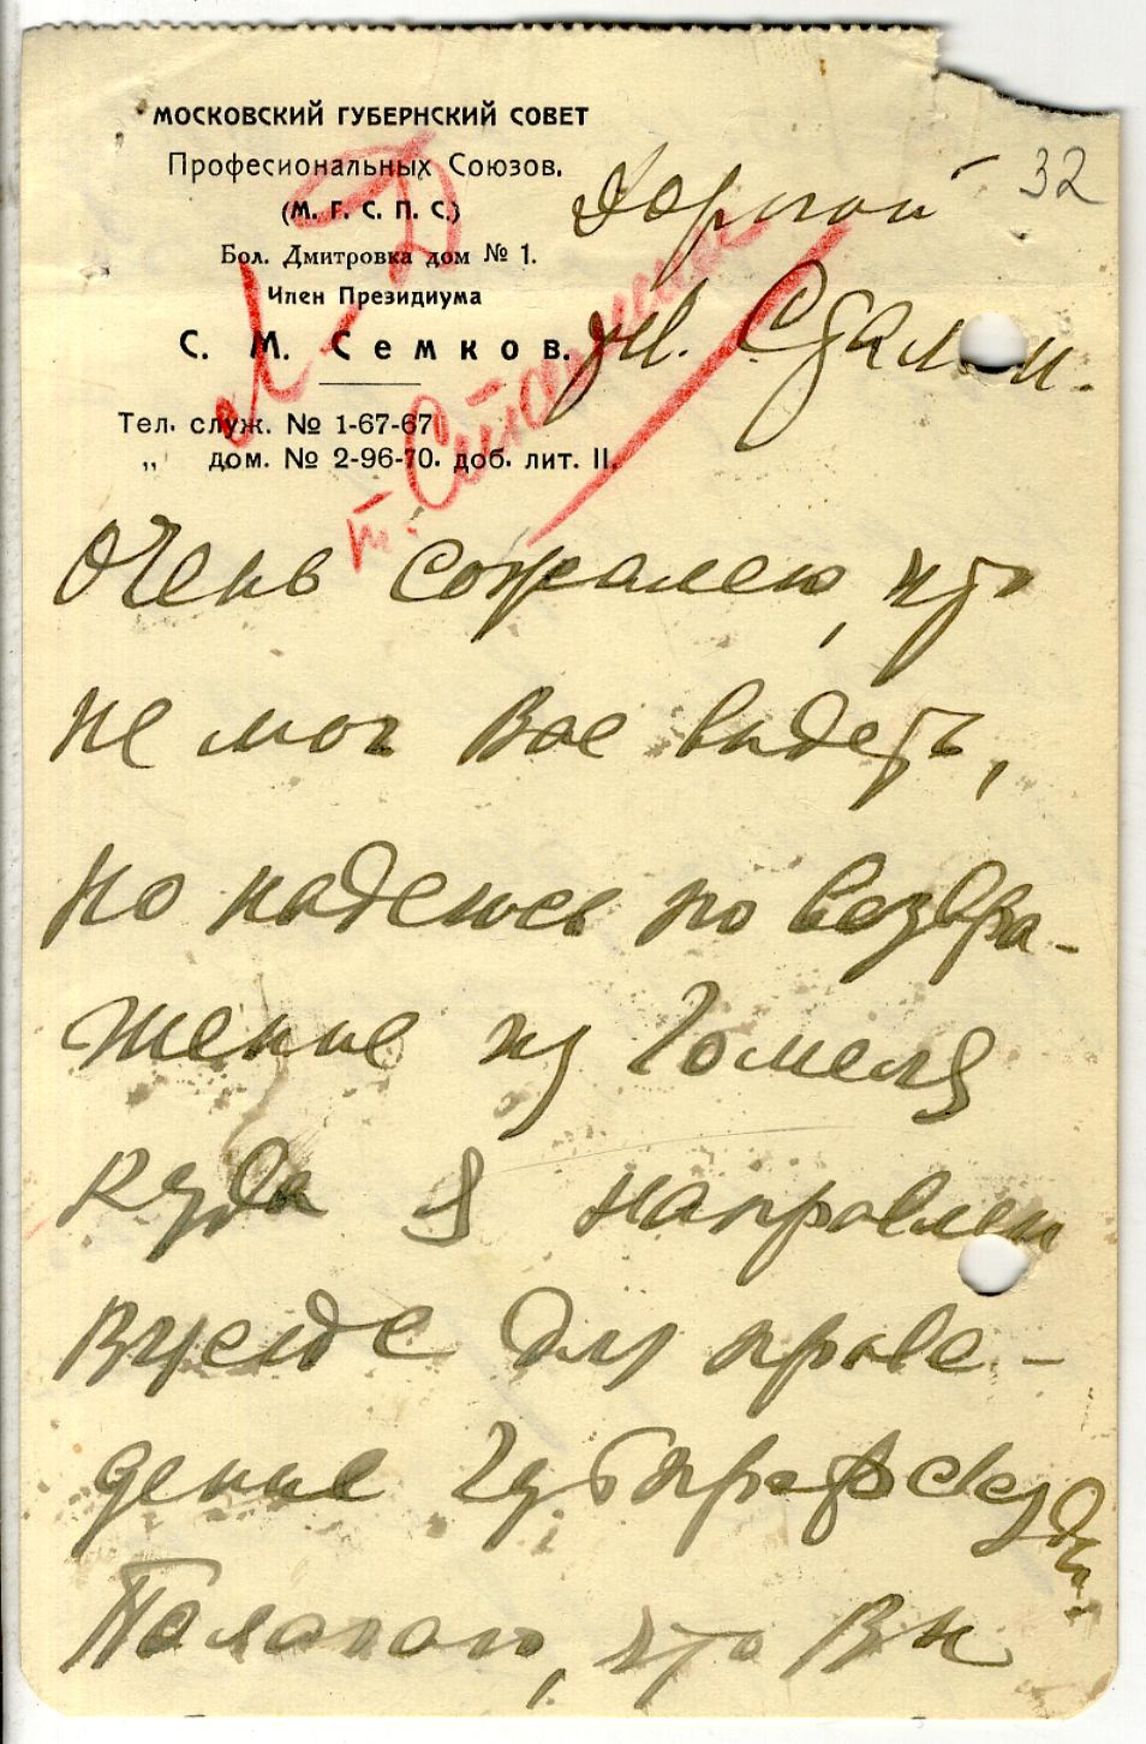 МОСКОВСКИЙ ГУБЕРНСКИЙ СОВЕТ
Професиональных Союзов.
(М. Г. С. П. С.)
Бол. Дмитровка дом № 1.
Член Президиума
С. М. Семков.
Тел. служ. № 1-67-67
„ дом. № 2-96-70. доб. лит. II.
32
Дорогой
т. Сталин.
Очень сожалею, что
не мог Вас видеть,
но надеюсь по возвра-
щение из Гомеля
куда я направлен
для прове-
дение Губпрофсезда.
Полагаю, что Вы